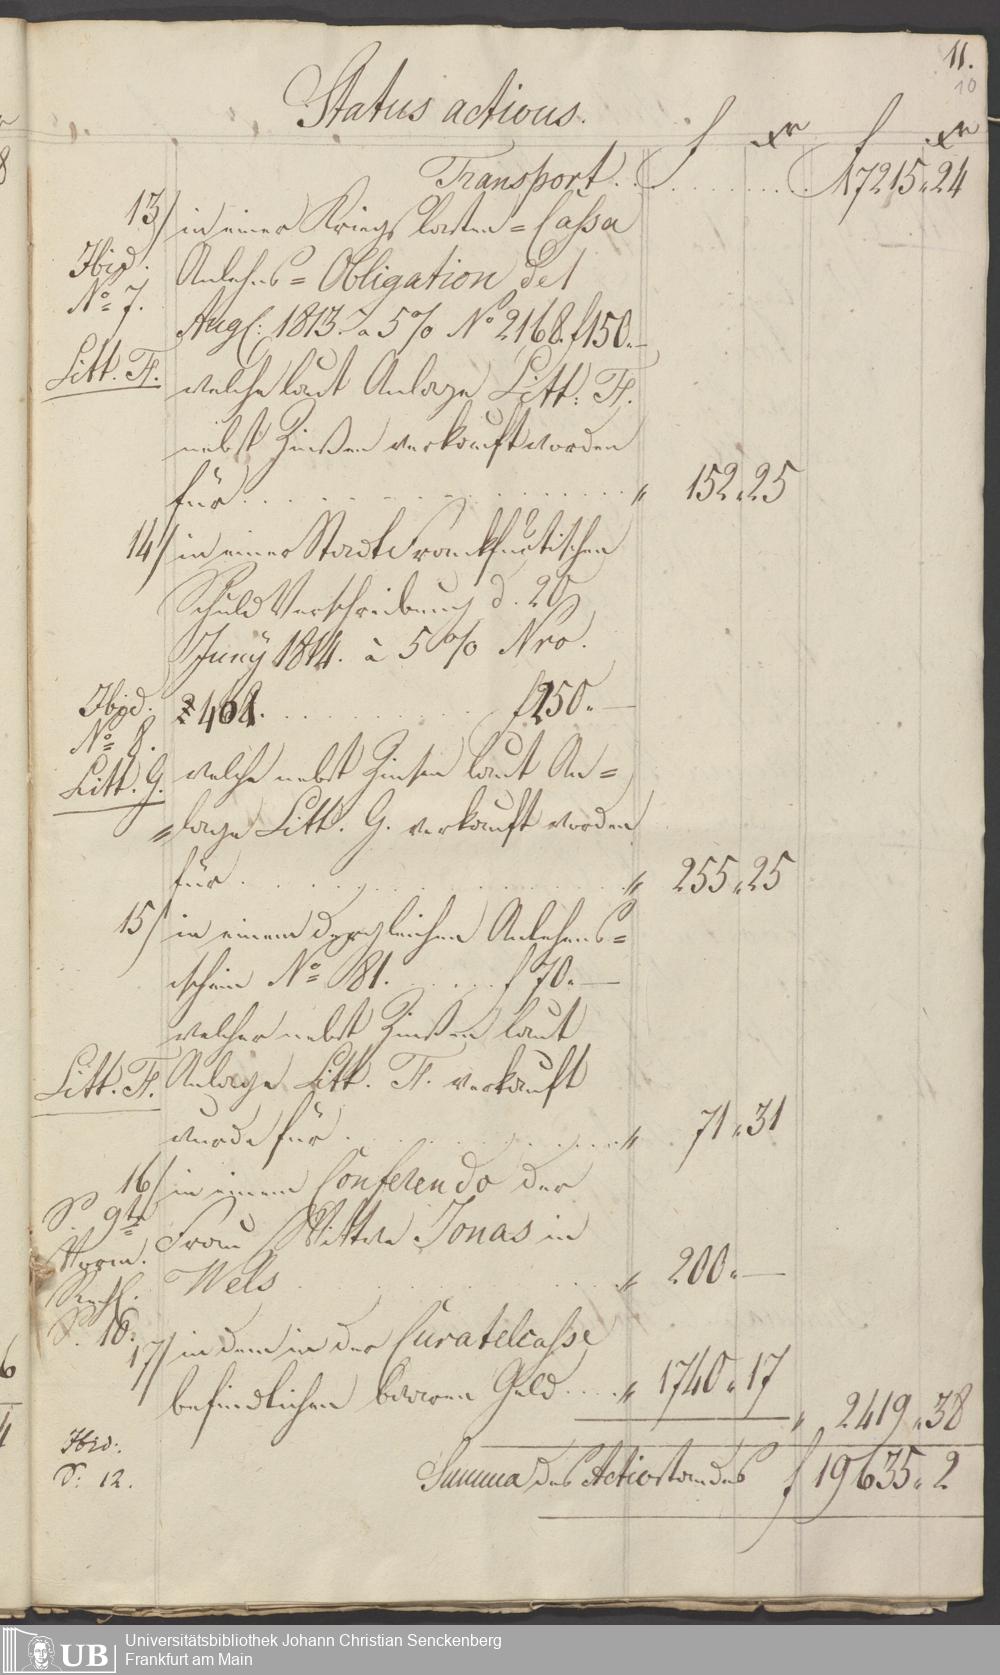 11.
10
Status activus.
f xr f xr
Transport . . . . . . . . . 17215 „ 24
13) in einer Kriegs Kosten = Cassa
Ibid.
Anlehns = Obligation de 1
No 7.
Aug: 1813. à 5% No 2168. f150.—
Litt. F.
welche laut Anlage Litt: F.
nebst Zinßen verkauft worden
für . . . . . . . . . . . „ 152 „ 25
14) in einer Stadt Franckfurtischen
Schuld Verschreibung d. 20
Juny 1814. à 5% Nro.
Ibid.
2461. . . . . . . . . f250.—
No 8.
Litt. G.
welche nebst Zinsen laut An=
=lage Litt. G. verkauft worden
für . . . . . . . . . . . „ 255 „ 25
15) in einem dergleichen Anlehens=
schein No 81. . . . . . f70.—
welcher nebst Zinßen laut
Litt. F.
Anlage Litt. F. verkauft
wurde für . . . . . . . . „ 71 „ 31
16) in einem Conferendo der
S. 9te
Frau Wittwe Jonas in
Vorm.
Wels . . . . . . . . . „ 200 „ —
Rech.
S. 16.
17) in dem in der Curatelcasse
befindlichen baaren Geld . . . . „ 1740 „ 17
„ 2419 „ 38
Ibid:
S: 12.
Summa des Activstandes f 19635 „ 2
UB
Universitätsbibliothek Johann Christian Senckenberg
Frankfurt am Main